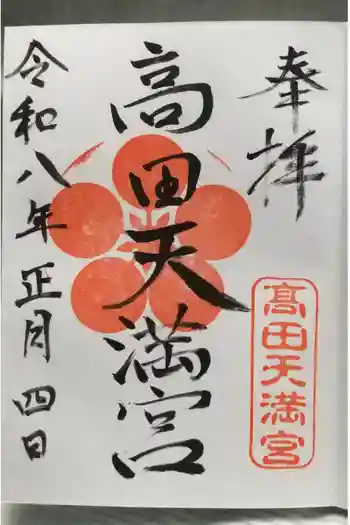 奉拝
髙田天満宮
高田天満宮
令和八年正月四日